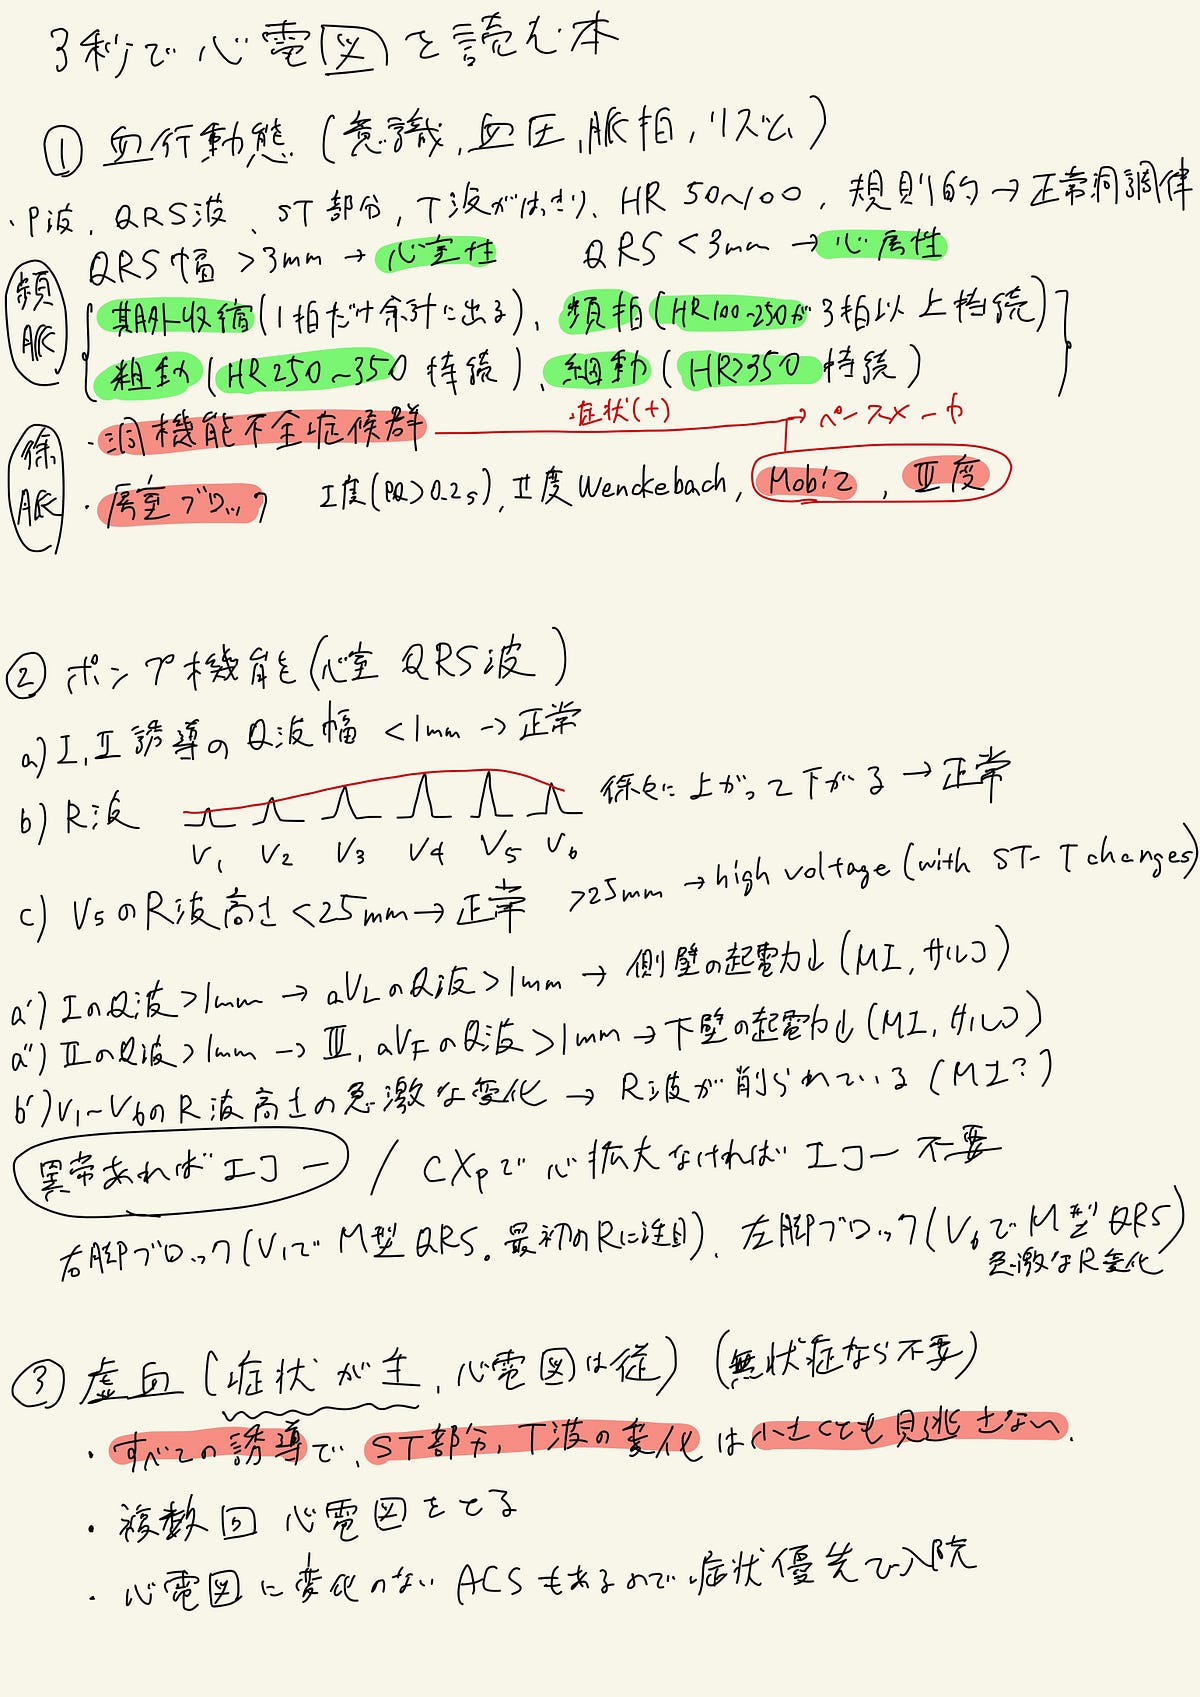 3秒で心電図を読む本
① 血行動態 (意識, 血圧, 脈拍, リズム)
・P波, QRS波、ST部分, T波がはっきり、HR 50~100, 規則的 → 正常洞調律
QRS幅 >3mm → 心室性 QRS <3mm → 心房性
頻脈
期外収縮(1拍だけ余計に出る)、頻拍(HR100~250が3拍以上持続)
粗動 (HR250~350 持続)、細動 (HR>350 持続)
徐脈
・洞機能不全症候群 症状(+) → ペースメーカ
・房室ブロック I度(PQ>0.2s), II度 Wenckebach, Mobiz, III度
② ポンプ機能(心室 QRS波)
a) I, II 誘導の Q波幅 <1mm → 正常
b) R波 徐々に上がって下がる → 正常
V1 V2 V3 V4 V5 V6
c) V5のR波高さ <25mm → 正常 >25mm → high voltage (with ST-T changes)
a') IのQ波>1mm → aVLのQ波>1mm → 側壁の起電力↓ (MI, サルコ)
a'') IIのQ波>1mm → III, aVFのQ波>1mm → 下壁の起電力↓ (MI, サルコ)
b') V1~V6のR波高さの急激な変化 → R波が削られている (MI?)
異常あればエコー / CXpで心拡大なければエコー不要
右脚ブロック(V1でM型QRS。最初のRに注目)、左脚ブロック(V6でM型QRS)
急激なR変化
③ 虚血 (症状が主, 心電図は従) (無状症なら不要)
・すべての誘導で、ST部分, T波の変化は小さくとも見逃さない.
・複数回心電図をとる
・心電図に変化のないACSもあるので、症状優先で入院